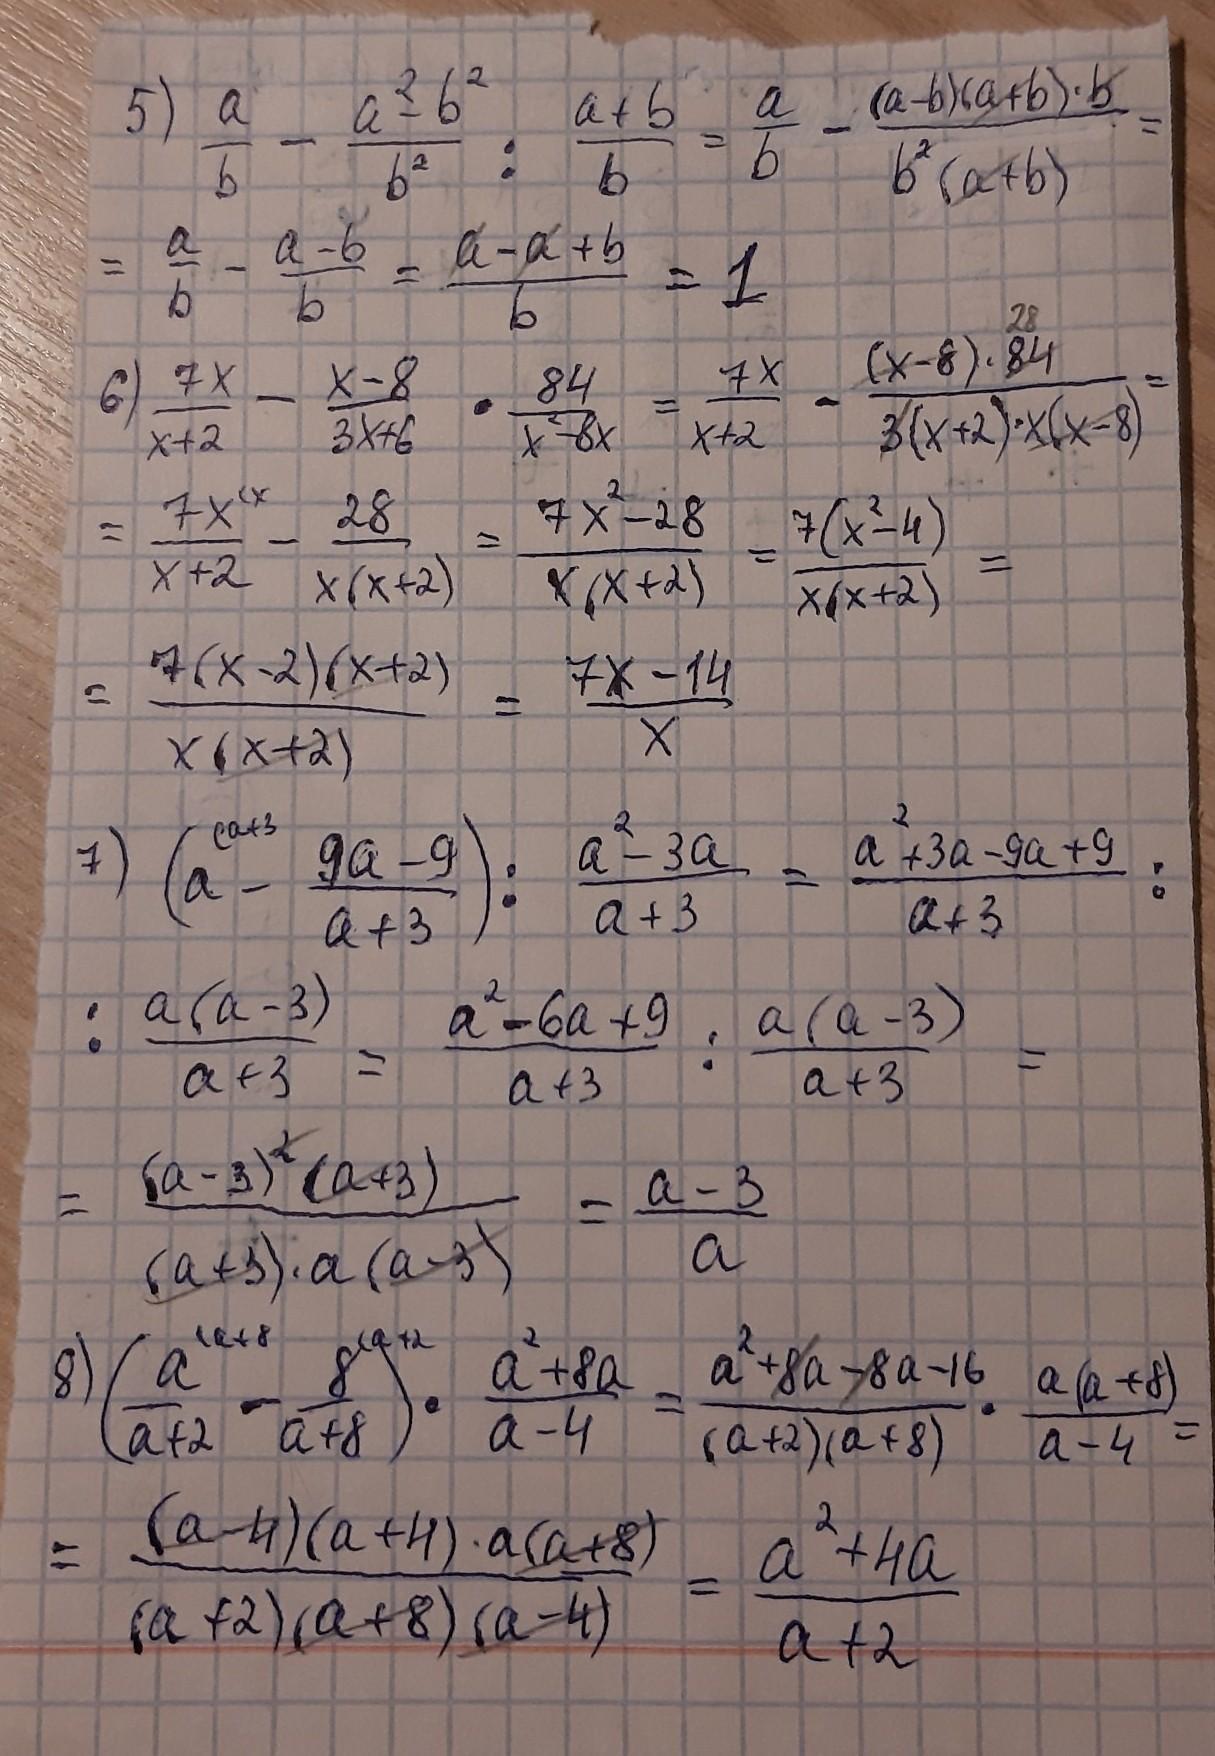 5) a/b - (a²-b²)/b² : (a+b)/b = a/b - ((a-b)(a+b)·b)/(b²(a+b)) =
= a/b - (a-b)/b = (a-a+b)/b = 1
6) 7x/(x+2) - (x-8)/(3x+6) · 84/(x²-8x) = 7x/(x+2) - ((x-8)·84 28)/(3(x+2)·x(x-8)) =
= 7x (x/(x+2) - 28/(x(x+2)) = (7x²-28)/(x(x+2)) = 7(x²-4)/(x(x+2)) =
= 7(x-2)(x+2)/(x(x+2)) = (7x-14)/x
7) (a (a+3 - (9a-9)/(a+3)) : (a²-3a)/(a+3) = (a²+3a-9a+9)/(a+3) :
: a(a-3)/(a+3) = (a²-6a+9)/(a+3) : a(a-3)/(a+3) =
= (a-3)²(a+3)/((a+3)·a(a-3)) = (a-3)/a
8) (a (a+8/(a+2) - 8 (a+2/(a+8)) · (a²+8a)/(a-4) = (a²+8a-8a-16)/((a+2)(a+8)) · a(a+8)/(a-4) =
= (a-4)(a+4)·a(a+8)/((a+2)(a+8)(a-4)) = (a²+4a)/(a+2)